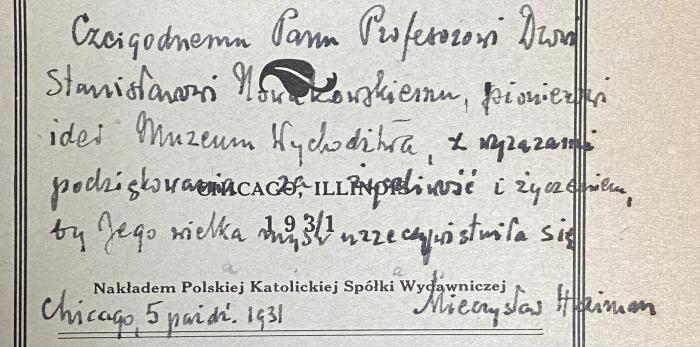 Czcigodnemu Panu Profesorowi Drowi
Stanisławowi Nowakowskiemu, pionierowi
idei Muzeum Wychodźtwa, z wyrazami
podziękowania za życzliwość i życzeniem,
CHICAGO, ILLINOIS
by Jego wielka myśl urzeczywistniła się
1931
Nakładem Polskiej Katolickiej Spółki Wydawniczej
Chicago, 5 paźdź. 1931 Mieczysław Haiman